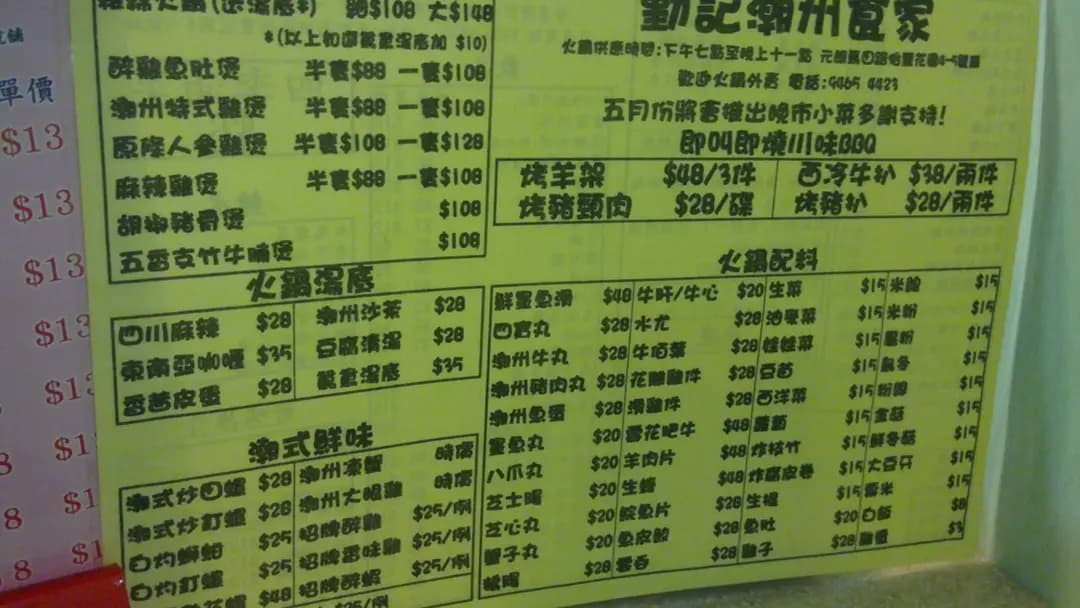 $108 大$148
*(以上如選鴛鴦湯底加 $10)
醉雞魚肚煲 半賣$88 一賣$108
潮州特式雞煲 半賣$88 一賣$108
原條人參雞煲 半賣$108 一賣$128
麻辣雞煲 半賣$88 一賣$108
胡椒豬骨煲 $108
五香支竹牛腩煲 $108
火鍋湯底
四川麻辣 $28 潮州沙茶 $28
東南亞咖喱 $35 豆腐清湯 $28
香茜皮蛋 $28 鴛鴦湯底 $35
潮式鮮味
潮式炒田螺 $28 潮州凍蟹 時價
潮式炒釘螺 $28 潮州大眼雞 時價
白灼蜆蚶 $25 招牌醉雞 $25/例
白灼釘螺 $25 招牌香味雞 $25/例
$48 招牌醉蝦 $25/例
$25/例
勤記潮州食家
火鍋供應時間:下午七點至晚上十一點
歡迎火鍋外賣 電話:9465 4423
五月份將會推出晚市小菜多謝支持!
即叫即燒川味BBQ
烤羊架 $48/3件 西冷牛扒 $38/兩件
烤豬頸肉 $28/碟 烤豬扒 $28/兩件
火鍋配料
鮮墨魚滑 $48 牛肝/牛心 $20 生菜 $15 $15
四寶丸 $28 $28 油麥菜 $15 米粉 $15
潮州牛丸 $28 牛百葉 $28 娃娃菜 $15 $15
潮州豬肉丸 $28 花雕雞件 $28 豆苗 $15 $15
潮州魚蛋 $28 滑雞件 $28 西洋菜 $15 粉絲 $15
墨魚丸 $20 雪花肥牛 $48 蘿蔔 $15 金菇 $15
八爪丸 $20 羊肉片 $48 炸枝竹 $15 鮮冬菇 $15
芝士腸 $20 生蠔 $48 炸腐皮卷 $15 大豆芽 $15
芝心丸 $20 鯇魚片 $28 生根 $15 粟米 $15
蟹子丸 $20 魚皮餃 $28 魚肚 $20 白飯 $8
$28 雲吞 $28 $28 雞蛋 $3
單價
$13
$13
$13
$13
$13
$1
$1
$1